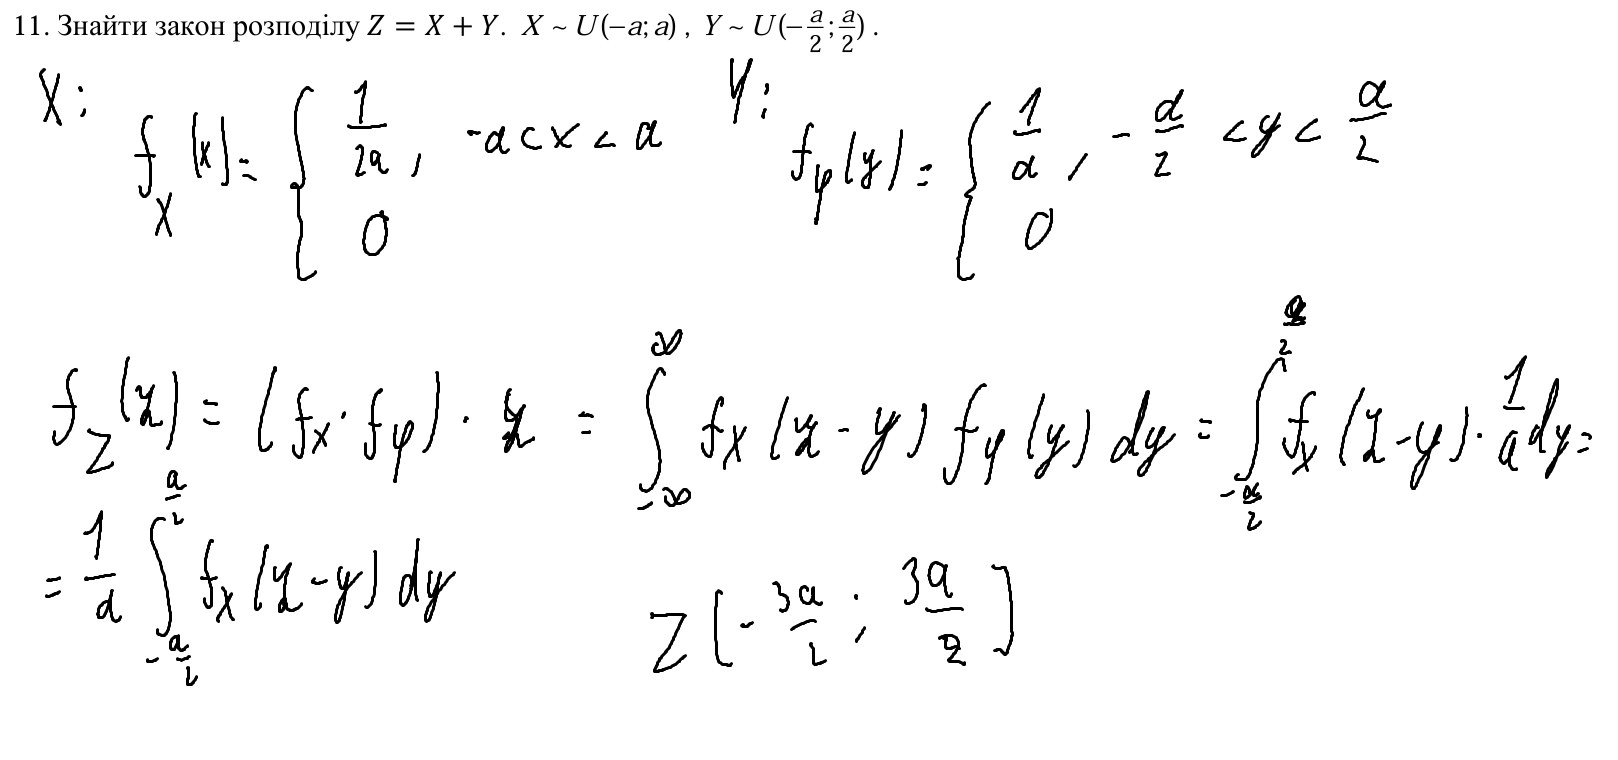 11. Знайти закон розподілу Z = X + Y. X ~ U(−a; a) , Y ~ U(−a/2; a/2) .
X: f_X(x) = { 1/2a, -a < x < a
0
Y: f_Y(y) = { 1/a, -a/2 < y < a/2
0
f_Z(z) = (f_X · f_Y) · z = ∫_{-∞}^{∞} f_X(z - y) f_Y(y) dy = ∫_{-a/2}^{a/2} f_X(z - y) · 1/a dy =
= 1/a ∫_{-a/2}^{a/2} f_X(z - y) dy
Z [-3a/2 ; 3a/2]